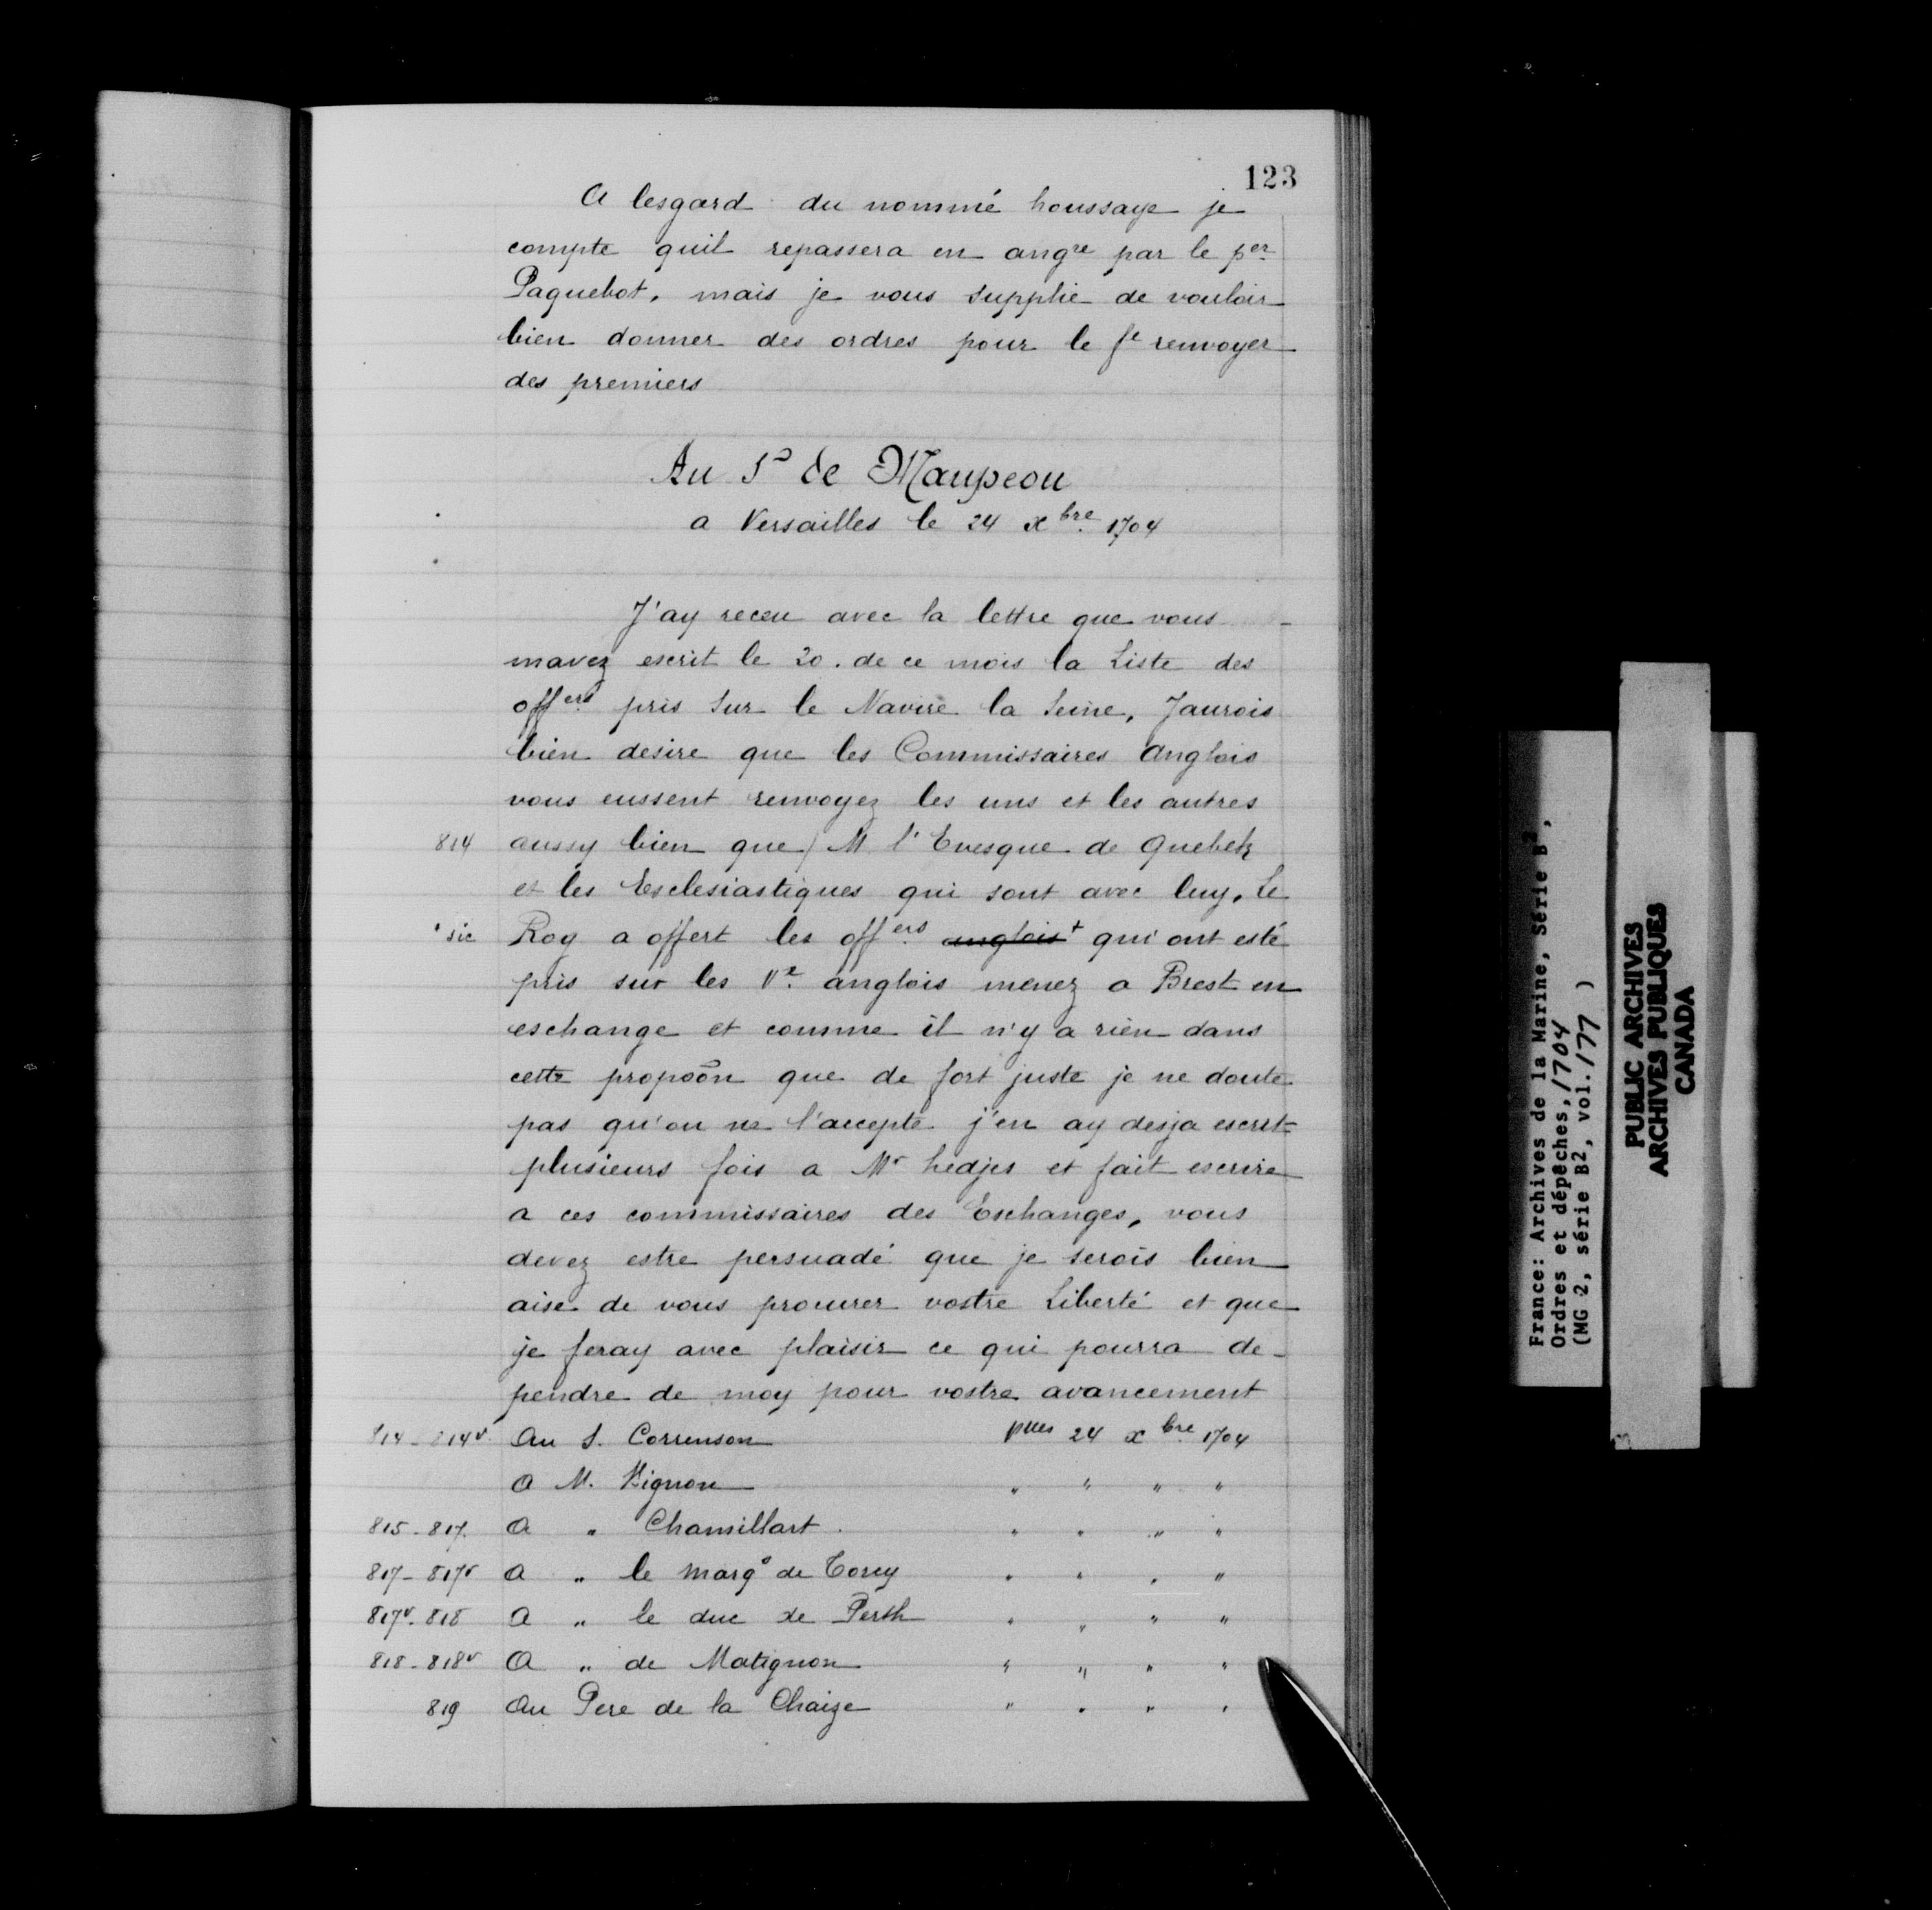 123
A lesgard du nommé houssaye je
compte quil repassera en angre par le per
Paquebot, mais je vous supplie de vouloir
bien donner des ordres pour le fe renvoyer
des premiers
Au Sr de Maupeou
a Versailles le 24 xbre 1704
J'ay receu avec la lettre que vous
mavez escrit le 20. de ce mois la Liste des
offers pris sur le Navire la Seine, Jaurois
bien desire que les Commissaires anglois
vous eussent renvoyez les uns et les autres
814 aussy bien que / M l'Evesque de Quebek
et les Esclesiastiques qui sont avec luy, Le
+ sic Roy a offert les offers anglois + qui ont esté
pris sur les Vx anglois menez a Brest en
eschange et comme il n'y a rien dans
cette propoõn que de fort juste je ne doute
pas qu'on ne l'accepte j'en ay desja escrit
plusieurs fois a Mr hedjes et fait escrire
a ces commissaires des Eschanges, vous
devez estre persuadé que je serois bien
aise de vous procurer vostre Liberté et que
je feray avec plaisir ce qui pourra de-
pendre de moy pour vostre avancement
814-814v Au S. Corrunson 24 xbre 1704
A M. Mignon " " " "
815-817. A " Chamillart " " " "
817-817v A " le marqs de Torcy " " " "
817v.818 A " le duc de Perth " " " "
818-818v A " de Matignon " " " "
819 Au Pere de la Chaize " " " "
France: Archives de la Marine, Série B2,
Ordres et dépêches, 1704
(MG 2, série B2, vol. 177 )
PUBLIC ARCHIVES
ARCHIVES PUBLIQUES
CANADA